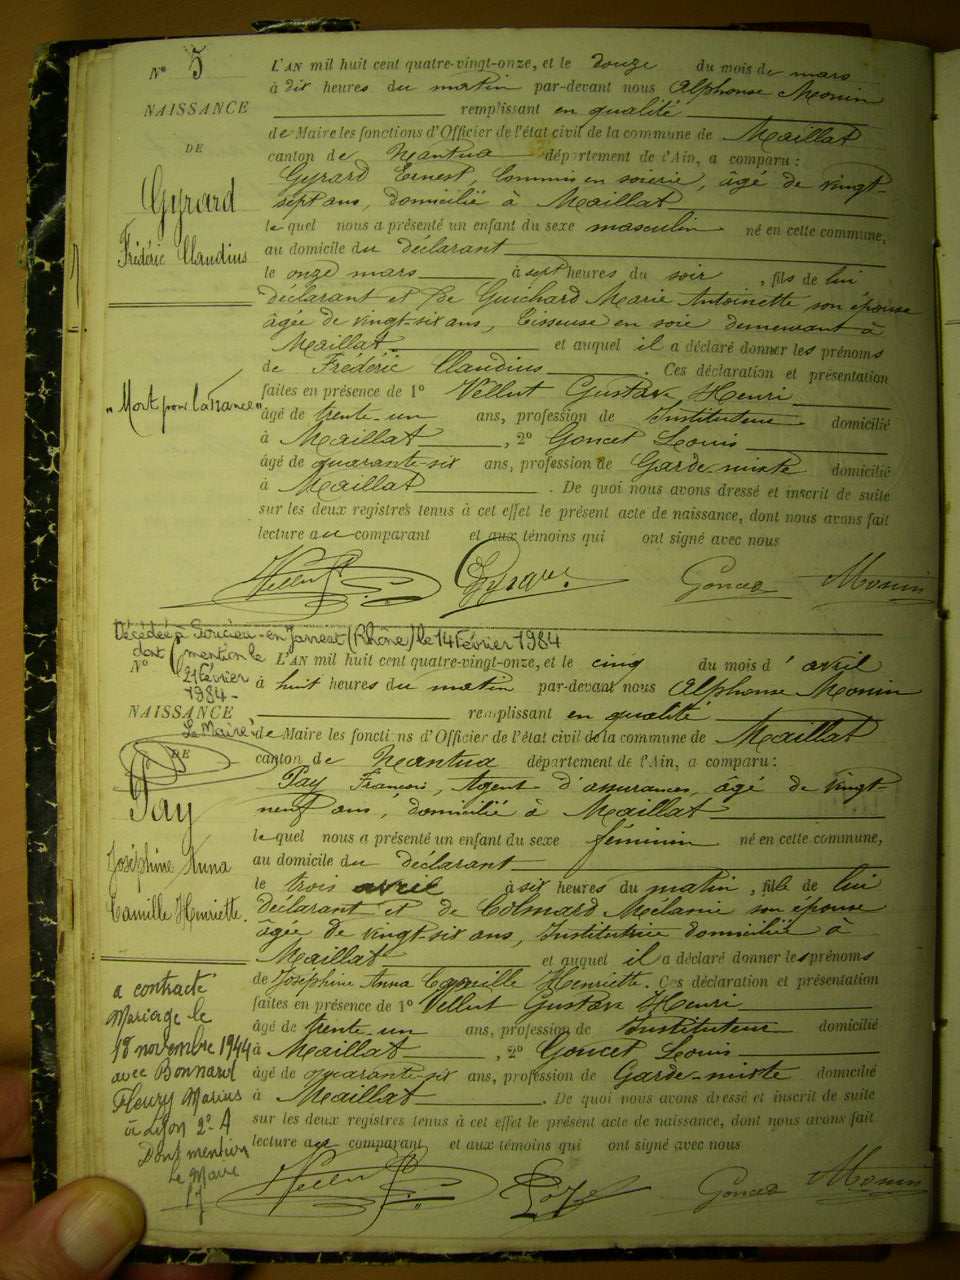 N° 5
NAISSANCE
DE
Gyrard
Frédéric Claudius
"Mort pour la France"
L'AN mil huit cent quatre-vingt-onze, et le douze du mois de mars
à dix heures du matin par-devant nous Alphonse Monin
remplissant en qualité
de Maire les fonctions d'Officier de l'état civil de la commune de Maillat
canton de Nantua département de l'Ain, a comparu :
Gyrard Ernest, Commis en soierie, âgé de vingt-
sept ans, domicilié à Maillat
lequel nous a présenté un enfant du sexe masculin né en cette commune,
au domicile du déclarant
le onze mars à sept heures du soir, fils de lui
déclarant et de Guichard Marie Antoinette son épouse
âgée de vingt-six ans, Tisseuse en soie demeurant à
Maillat et auquel il a déclaré donner les prénoms
de Frédéric Claudius. Ces déclaration et présentation
faites en présence de 1° Vellut Gustave Henri
âgé de trente-un ans, profession de Instituteur domicilié
à Maillat, 2° Goncet Louis
âgé de quarante-six ans, profession de Garde-mixte domicilié
à Maillat. De quoi nous avons dressé et inscrit de suite
sur les deux registres tenus à cet effet le présent acte de naissance, dont nous avons fait
lecture au comparant et aux témoins qui ont signé avec nous
Vellut Gyrard Goncet Monin
Décédée à Soucieu-en-Jarrest (Rhône) le 14 Février 1984
dont mention le
21 février
1984 -
Le Maire
N°
NAISSANCE
DE
Pay
Joséphine Anna
Camille Henriette.
a contracté
Mariage le
18 novembre 1944
avec Bonnard
Fleury Marius
à Lyon 2° A
Dont mention
Le Maire
L'AN mil huit cent quatre-vingt-onze, et le cinq du mois d'avril
à huit heures du matin par-devant nous Alphonse Monin
remplissant en qualité
de Maire les fonctions d'Officier de l'état civil de la commune de Maillat
canton de Nantua département de l'Ain, a comparu :
Pay François, Agent d'assurances, âgé de vingt-
neuf ans, domicilié à Maillat
lequel nous a présenté un enfant du sexe féminin né en cette commune,
au domicile du déclarant
le trois avril à six heures du matin, fille de lui
déclarant et de Colmard Mélanie son épouse
âgée de vingt-six ans, Institutrice domiciliée à
Maillat et auquel il a déclaré donner les prénoms
de Joséphine Anna Camille Henriette. Ces déclaration et présentation
faites en présence de 1° Vellut Gustave Henri
âgé de trente-un ans, profession de Instituteur domicilié
à Maillat, 2° Goncet Louis
âgé de quarante-six ans, profession de Garde-mixte domicilié
à Maillat. De quoi nous avons dressé et inscrit de suite
sur les deux registres tenus à cet effet le présent acte de naissance, dont nous avons fait
lecture au comparant et aux témoins qui ont signé avec nous
Vellut Pay Goncet Monin